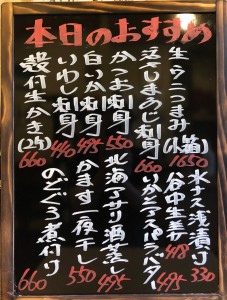 本日のおすすめ
生ウニつまみ(小箱) 1650
活〆しまあじ刺身 660
かつお刺身 550
白いか刺身 495
いわし刺身 440
殻付生かき(2ヶ) 660
水ナス浅漬け 330
谷中生姜 418
いかとアスパラバター 495
北海アサリ酒蒸し 495
かます一夜干し 550
のどぐろ煮付け 660